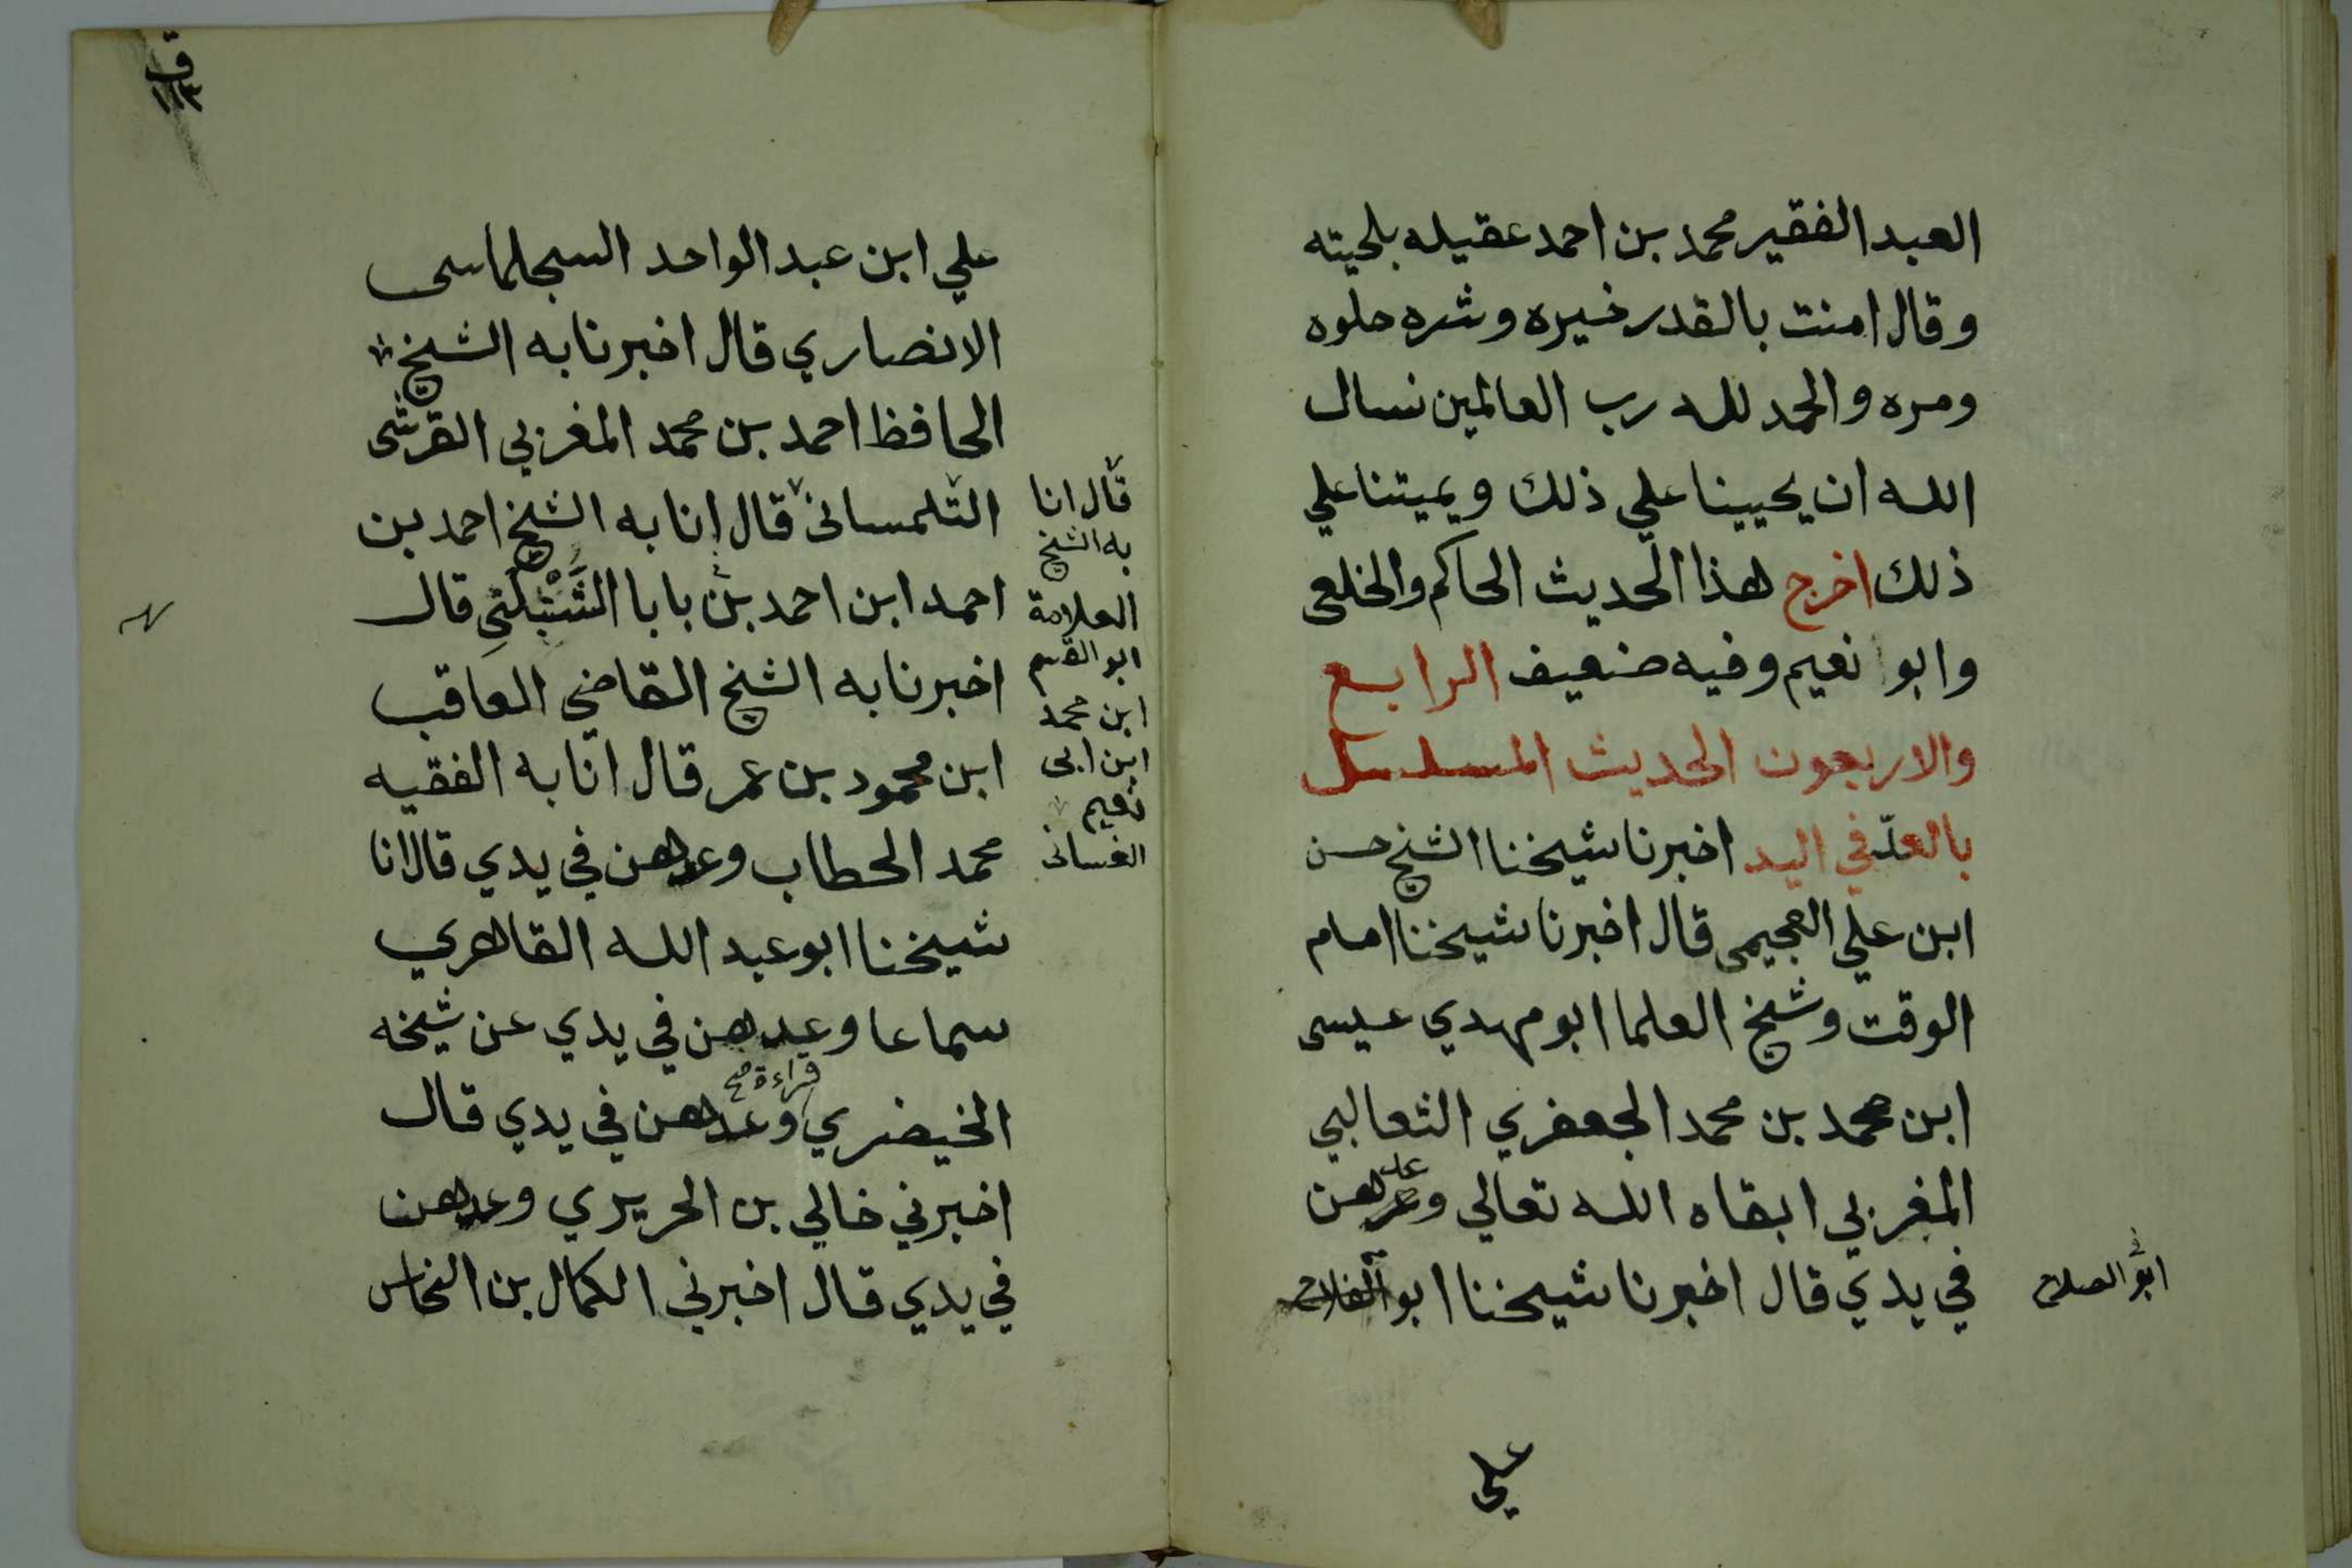 العبد الفقير محمد بن احمد عقيله بلحيته
وقال امنت بالقدر خيره وشره حلوه
ومره والحمد لله رب العالمين نسال
الله ان يحيينا علي ذلك ويميتنا علي
ذلك اخرج هذا الحديث الحاكم والخلعى
وابو نعيم وفيه ضعيف الرابع
والاربعون الحديث المسلسل
بالعدّ في اليد اخبرنا شيخنا الشيخ حسن
ابن علي العجيمى قال اخبرنا شيخنا امام
الوقت وشيخ العلما ابو مهدي عيسى
ابن محمد بن محمد الجعفري الثعالبي
المغربي ابقاه الله تعالي وعدهن
عد
في يدي قال اخبرنا شيخنا ابو
ابو الصلاح
علي
علي ابن عبد الواحد السجلماسى
الانصاري قال اخبرنا به الشيخ
الحافظ احمد بن محمد المغربي القرشى
التلمسانى قال انا به الشيخ احمد بن
احمد ابن احمد بن بابا قال
اخبرنا به الشيخ القاضي العاقب
ابن محمود بن عمر قال انا به الفقيه
محمد الحطاب وعدهن في يدي قال انا
شيخنا ابو عبد الله القاهري
سماعا وعدهن في يدي عن شيخه
قراءة صح
الخيضري وعدهن في يدي قال
اخبرني خالي بن الحريري وعدهن
في يدي قال اخبرني الكمال بن النحاس
قال انا
به الشيخ
العلامة
ابو القسم
ابن محمد
ابن ابى
نعيم
الغسانى